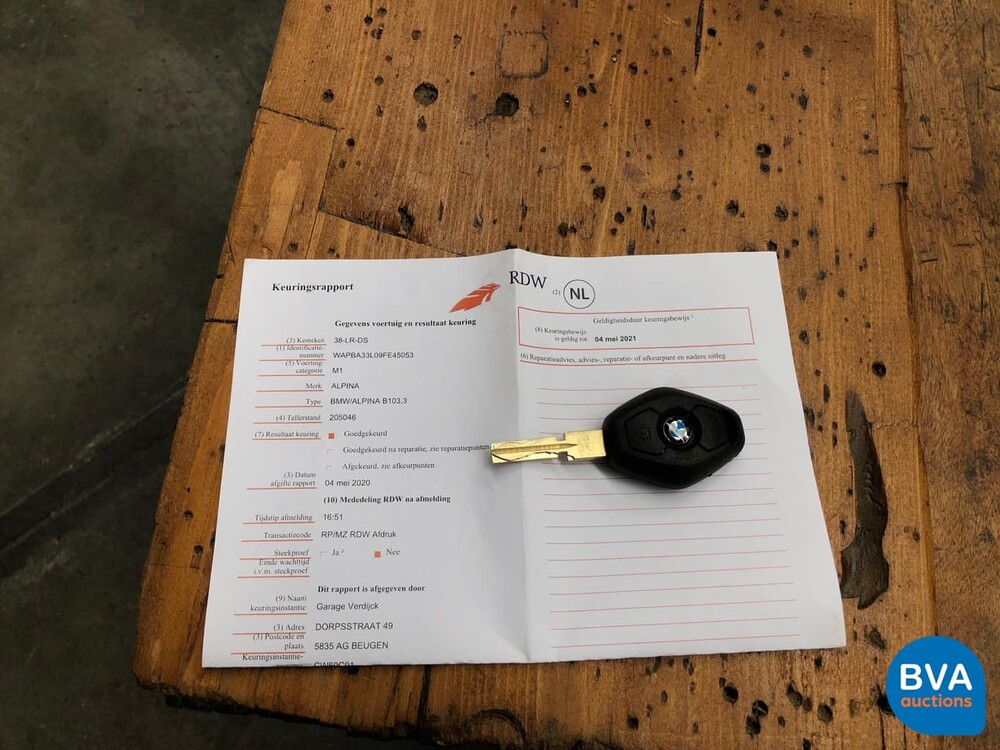 Keuringsrapport
RDW
(2) NL
Gegevens voertuig en resultaat keuring
(2) Kenteken 38-LR-DS
(1) Identificatie-
nummer WAPBA33L09FE45053
(5) Voertuig-
categorie M1
Merk ALPINA
Type BMW/ALPINA B103,3
(4) Tellerstand 205046
(7) Resultaat keuring Goedgekeurd
Goedgekeurd na reparatie, zie reparatiepunten
Afgekeurd, zie afkeurpunten
(3) Datum
afgifte rapport 04 mei 2020
(10) Mededeling RDW na afmelding
Tijdstip afmelding 16:51
Transactiecode RP/MZ RDW Afdruk
Steekproef Ja Nee
Einde wachttijd
i.v.m. steekproef
Dit rapport is afgegeven door
(9) Naam
keuringsinstantie Garage Verdijck
(3) Adres DORPSSTRAAT 49
(3) Postcode en
plaats 5835 AG BEUGEN
Keuringsinstantie-
Geldigheidsduur keuringsbewijs
(8) Keuringsbewijs
is geldig tot 04 mei 2021
(6) Reparatieadvies, advies-, reparatie- of afkeurpunt en nadere uitleg
BVA
auctions